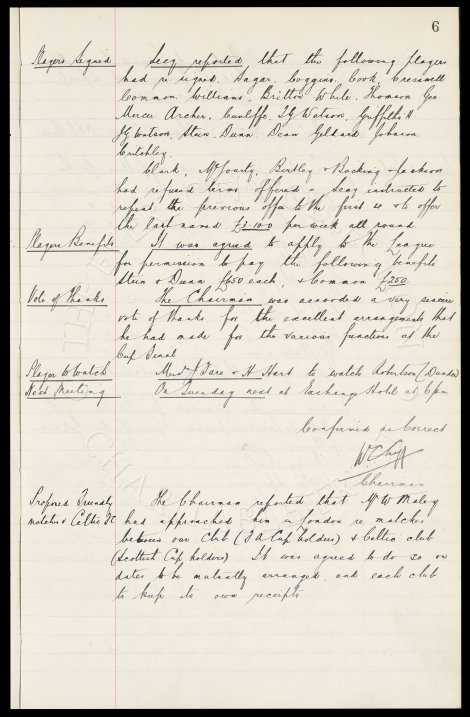 6
Players Signed Secy reported that the following players
had re signed. Sagar. Coggins. Cook. Cresswell
Common Williams. Britton White. Thomson Geo
Mercer Archer. Cunliffe. T.G Watson. Griffiths H
J.G Watson. Stein Dunn Dean Geldard Johnson.
Critchley.
Clark, McGourty, Birtley & Bocking & Jackson
had refused terms offered & Secy instructed to
repeat the previous offer to the first 4 & to offer
the last named £7.10.0 per week all round
Players Benefits It was agreed to apply to the League
for permission to pay the following benefits
Stein & Dunn £650 each, & Common £250
Vote of thanks The Chairman was accorded a very sincere
vote of thanks for the excellent arrangements that
he had made for the various functions at the
Cup Final
Player to Watch Mr J Fare & H Hart to watch Robertson (Dundee)
Next Meeting On Tuesday next at Exchange Hotel at 6pm
Confirmed as Correct
W C Cuff
Chairman
Proposed Friendly The Chairman reported that Mr W Maley
matches Celtic FC had approached him in London re matches
between our Club (F A Cup holders) & Celtic club
(Scottish Cup holders) It was agreed to do so on
dates to be mutually arranged, and each club
to keep its own receipts